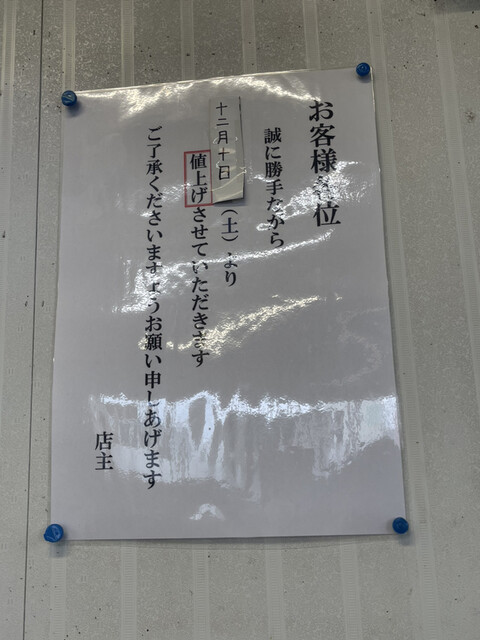 お客様各位
誠に勝手ながら
十二月十日(土)より
値上げさせていただきます
ご了承くださいますようお願い申しあげます
店主